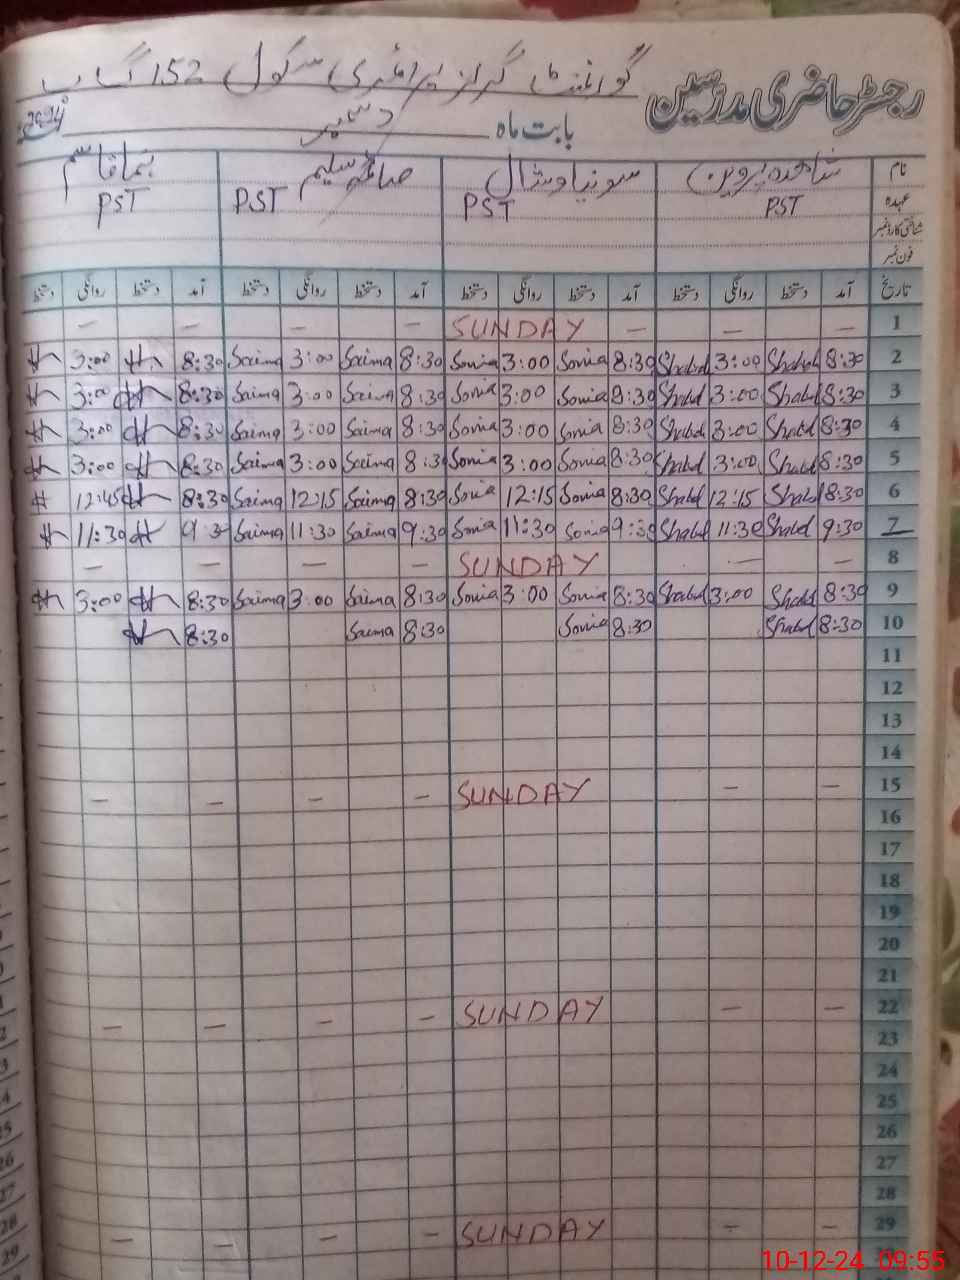 رجسٹر حاضری مدرسین
گورنمنٹ گرلز پرائمری سکول 152 گ ب
بابت ماہ دسمبر
نام شاہدہ پروین سونیا صائمہ سلیم ہما قاسم
عہدہ PST PST PST PST
شناختی کارڈ نمبر
فون نمبر
تاریخ آمد دستخط روانگی دستخط آمد دستخط روانگی دستخط آمد دستخط روانگی دستخط آمد دستخط روانگی دستخط
1 — — — SUNDAY — — — —
2 8:30 Shahd 3:00 Shahd 8:30 Sonia 3:00 Sonia 8:30 Saima 3:00 Saima 8:30 3:00
3 8:30 Shahd 3:00 Shahd 8:30 Sonia 3:00 Sonia 8:30 Saima 3:00 Saima 8:30 3:00
4 8:30 Shahd 3:00 Shahd 8:30 Sonia 3:00 Sonia 8:30 Saima 3:00 Saima 8:30 3:00
5 8:30 Shahd 3:00 Shahd 8:30 Sonia 3:00 Sonia 8:30 Saima 3:00 Saima 8:30 3:00
6 8:30 Shahd 12:15 Shahd 8:30 Sonia 12:15 Sonia 8:30 Saima 12:15 Saima 8:30 12:45
7 9:30 Shahd 11:30 Shahd 9:30 Sonia 11:30 Sonia 9:30 Saima 11:30 Saima 9:30 11:30
8 — — SUNDAY — — — —
9 8:30 Shahd 3:00 Shahd 8:30 Sonia 3:00 Sonia 8:30 Saima 3:00 Saima 8:30 3:00
10 8:30 Shahd 8:30 Sonia 8:30 Saima 8:30
11
12
13
14
15 — — SUNDAY — — — —
16
17
18
19
20
21
22 — — SUNDAY — — — —
23
24
25
26
27
28
29 — — SUNDAY — — — —
10-12-24 09:55